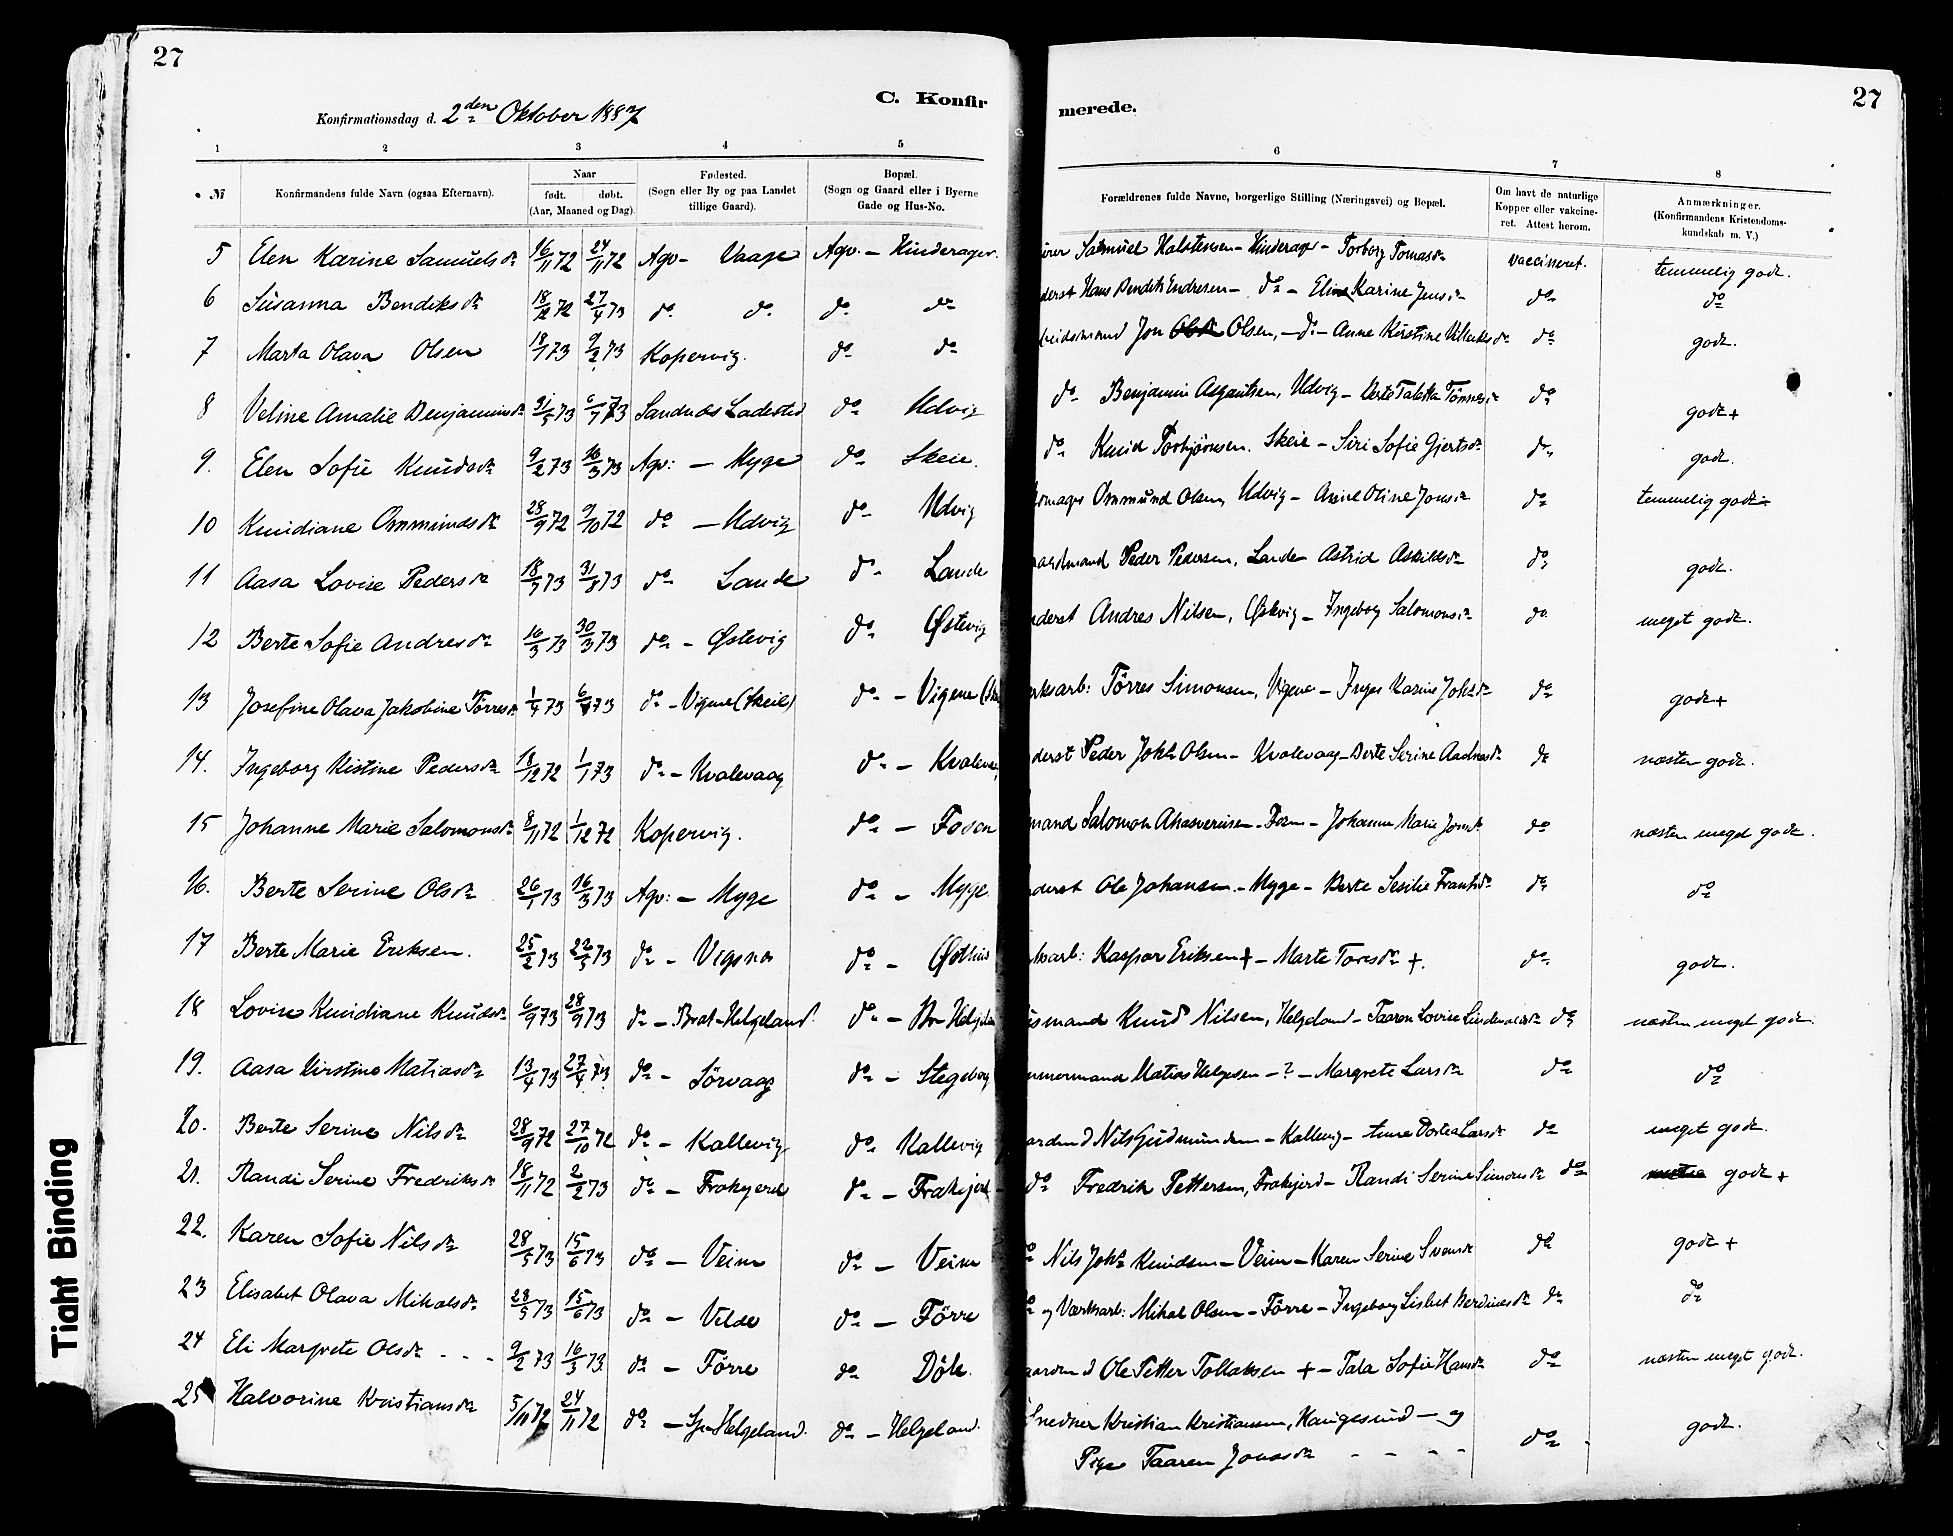 27
27
C. Konfir
merede.
Konfirmationsdag d. 2den Oktober 1887
1 2 3 4 5
6 7 8
№
Konfirmandens fulde Navn (ogsaa Efternavn).
Naar
født. døbt.
(Aar, Maaned og Dag).
Fødested.
(Sogn eller By og paa Landet
tillige Gaard).
Bopæl.
(Sogn og Gaard eller i Byerne
Gade og Hus-No.
Forældrenes fulde Navne, borgerlige Stilling (Næringsvei) og Bopæl.
Om havt de naturlige
Kopper eller vakcine-
ret. Attest herom.
Anmærkninger.
(Konfirmandens Kristendoms-
kundskab m. V.)
5 Elen Karine Samuelsdr 16/11 72 24/11 72 Agv- Vaage Agv. - Hinderager. Samuel Halstensen - Hinderager - Torborg Tomasdr vaccineret. temmelig godt.
6 Susanna Bendiksdr 18/12 72 27/4 73 do do do do Hans Bendik Endresen - do - Karine do do
7 Marta Olava Olsen 18/1 73 9/2 73 Kopervig. do do Jon Olsen, - do - Anne Kirstine do godt.
8 Veline Amalie Benjaminsdr 31/5 73 6/7 73 Sandnes Ladested do Udvig do Benjamin Asgautsen, Udvig - Berte do godt +
9. Elen Sofie Knudsdr 9/2 73 16/3 73 Agv: - Myge do Skeie. do Knud Torbjörnsen. Skeie - Siri Sofie Gjertsdr do godt.
10 Knudiane Ommundsdr 28/9 72 9/10 72 do - Udvig do Udvig Ommund Olsen, Udvig - Anne Oline do temmelig godt
11 Aasa Lovise Pedersdr 18/7 73 31/8 73 do Lande do Lande Peder Pedersen, Lande Astrid do godt.
12 Berte Sofie Andresdr 16/3 73 30/3 73 do - Østevig do Østevig Andres Nilsen, Østevig - Ingeborg do meget godt.
13 Josefine Olava Jakobine Törresdr 1/4 73 6/4 73 do - Vigene (Skeie) do - Vigene Törres Simonsen, Vigene - Inger Karine do godt +
14. Ingeborg Kistine Pedersdr 18/12 72 1/1 73 do - Kvalevaag do - Peder Olsen - Kvalevaag - Berte Serine do næsten godt.
15 Johanne Marie Salomonsdr 8/11 72 1/12 72 Kopervig. do - Fosen Salomon - Johanne Marie do næsten meget godt.
16. Berte Serine Olsdr 26/1 73 16/3 73 Agv: - Myge do - Myge. Ole Johansen - Myge - Berte Sesilie do do
17 Berte Marie Eriksen. 25/2 73 22/3 73 do - Vigsnes do - Kaspar Eriksen + - Marte Toresdr +. do godt.
18 Lovise Knudiane Knudsdr 6/9 73 28/9 73 do - Brat-Helgeland do - Knud Nilsen, Helgeland - Taaren Lovise do næsten meget godt.
19. Aasa Kirstine Matiasdr 13/4 73 27/4 73 do - Sörvaag do - Matias Helgesen - ? - Margrete Larsdr do do
20. Berte Serine Nilsdr 28/9 72 27/10 72 do - Kallevig do Kallevig Nils Gudmundsen - Kallevig - Anne Dortea Larsdr do meget godt.
21. Randi Serine Fredriksdr 18/11 72 2/2 73 do - Frakjerd do - Frakjerd do Fredrik Pettersen, Frakjerd - Randi Serine Simonsdr do godt +
22. Karen Sofie Nilsdr 28/5 73 15/6 73 do - Veim do - Veim Nils Knudsen - Veim - Karen Serine do godt +
23 Elisabet Olava Mikalsdr 28/5 73 15/6 73 do - Velde do - Förre og Værksarb: Mikal Olsen - Förre - Ingeborg do do
24 Eli Margrete Olsdr - - - 9/2 73 16/3 73 do - Förre do Döle. Ole Petter Tollaksen + - Tala Sofie Hansdr do næsten meget godt.
25 Halvorine Kristiansdr 5/11 72 24/11 72 do - Helgeland. do - Helgeland. Snedker Kristian Kristiansen, Haugesund - og do godt.
Pige Taaren Jonasdr - - - -
Tight Binding